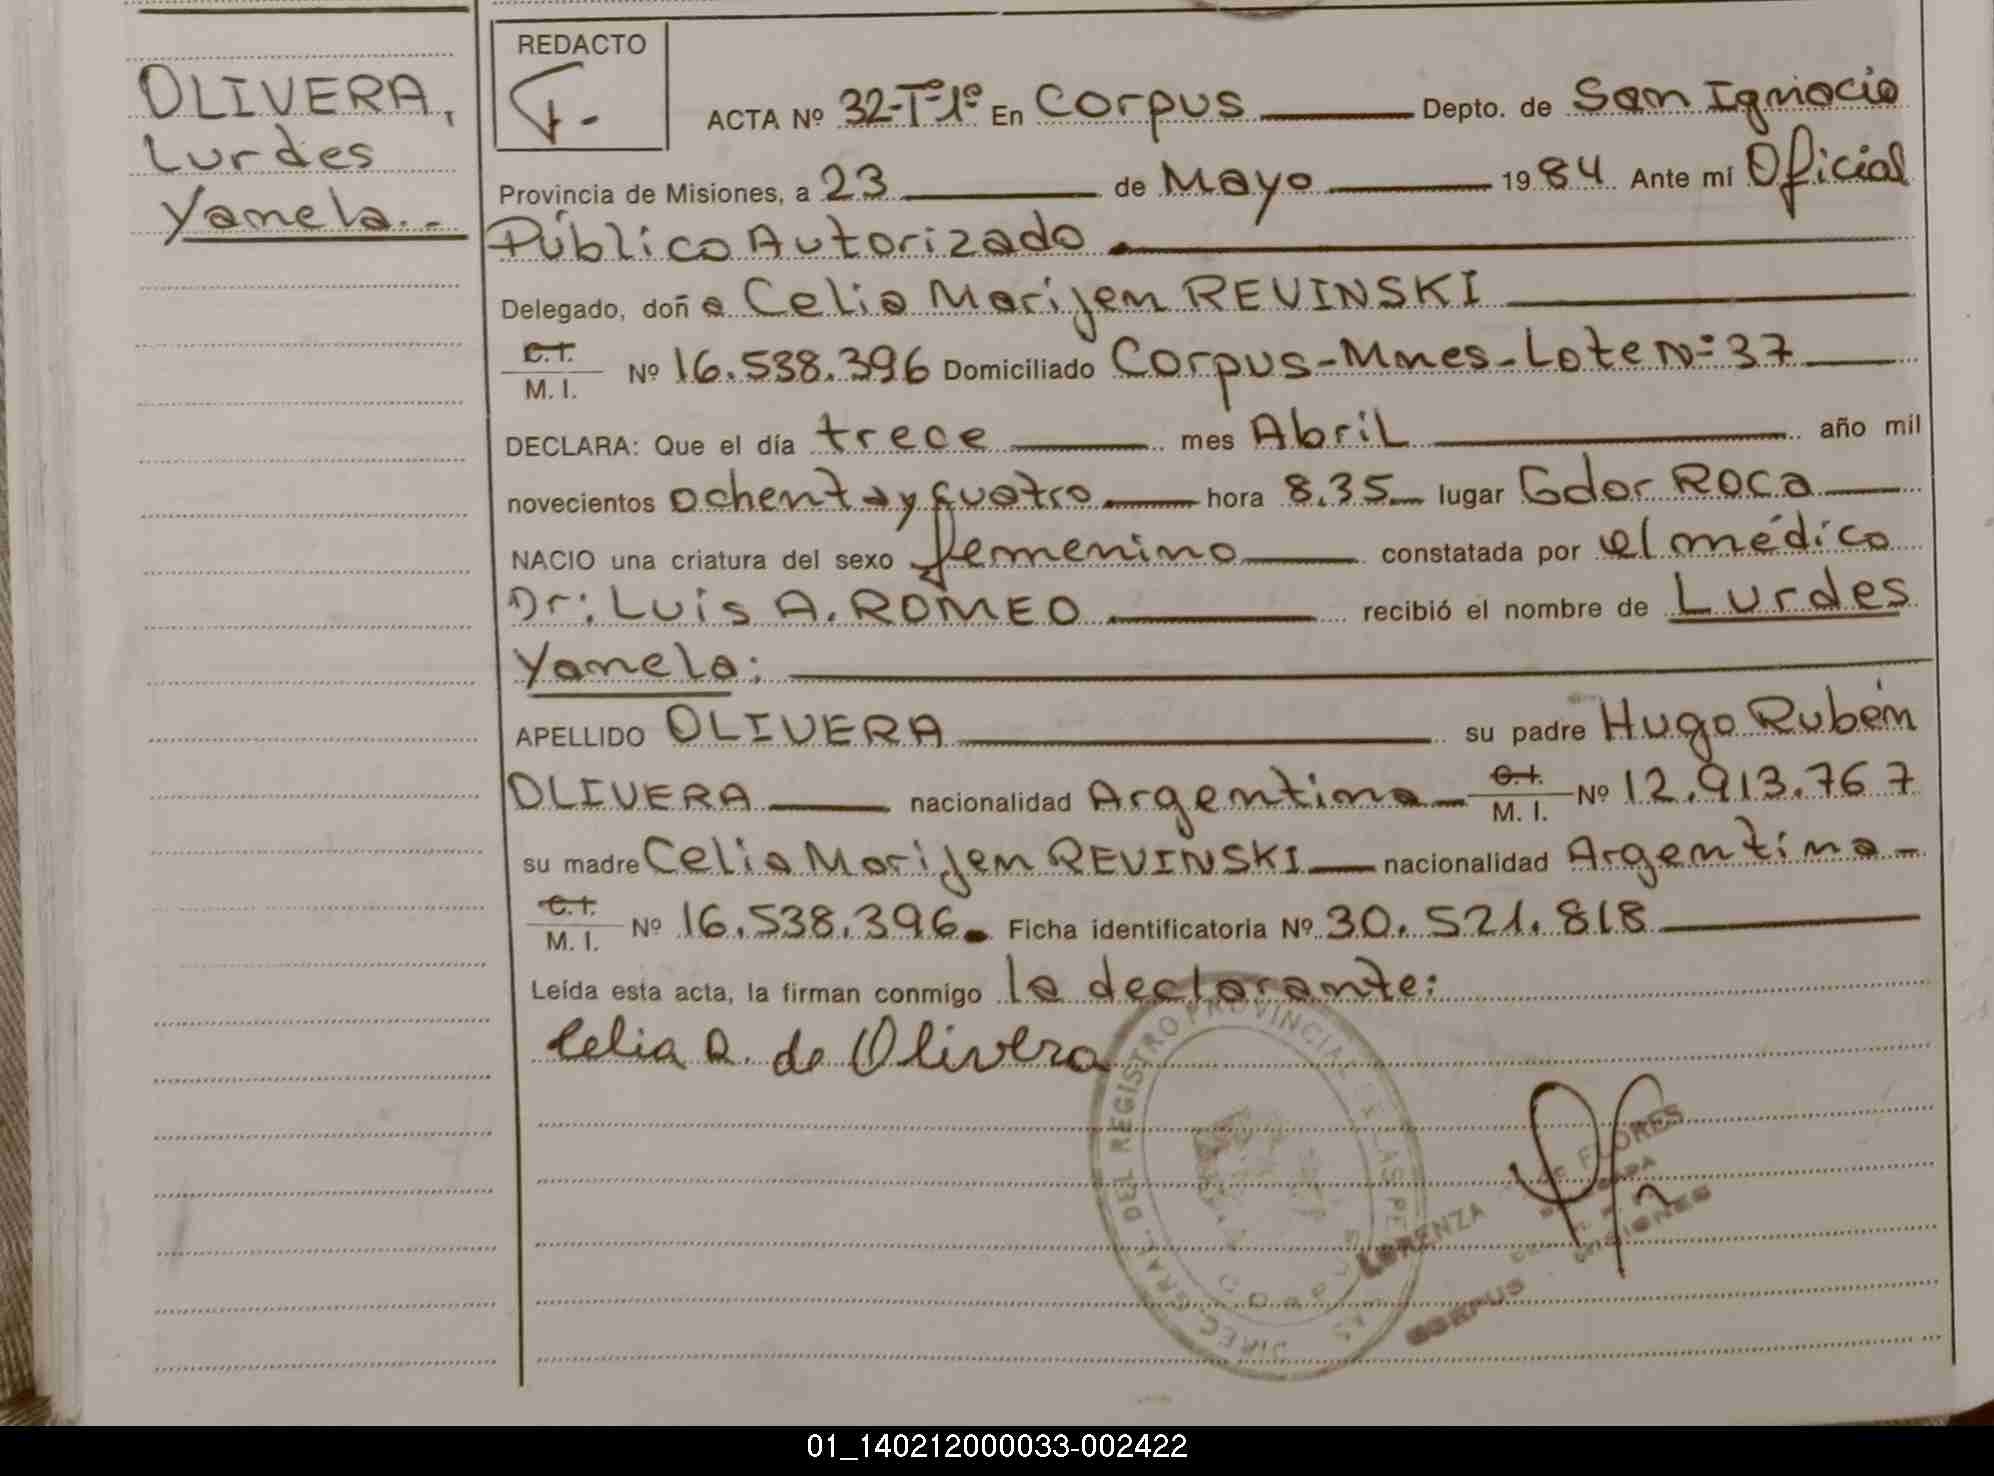 OLIVERA,
Lurdes
Yamela.-
REDACTO
ACTA Nº 32-Tº1º En Corpus Depto. de San Ignacio
Provincia de Misiones, a 23 de Mayo 1984 Ante mí Oficial
Público Autorizado
Delegado, doña Celia Marijen REVINSKI
C.I.
M. I. Nº 16.538.396 Domiciliado Corpus-Mnes-Lote Nº 37
DECLARA: Que el día trece mes Abril año mil
novecientos ochenta y cuatro hora 8.35 lugar Gdor Roca
NACIO una criatura del sexo femenino constatada por el médico
Dr: Luis A. ROMEO recibió el nombre de Lurdes
Yamela:
APELLIDO OLIVERA su padre Hugo Rubén
OLIVERA nacionalidad Argentina C.I. M. I. Nº 12.913.767
su madre Celia Marijen REVINSKI nacionalidad Argentina-
C.I.
M. I. Nº 16.538.396. Ficha identificatoria Nº 30.521.818
Leída esta acta, la firman conmigo la declarante:
Celia R. de Olivera
DIREC. GRAL. DEL REGISTRO PROVINCIAL DE LAS PERSONAS
CORPUS
LORENZA DE FLORES
CORPUS MISIONES
01_140212000033-002422